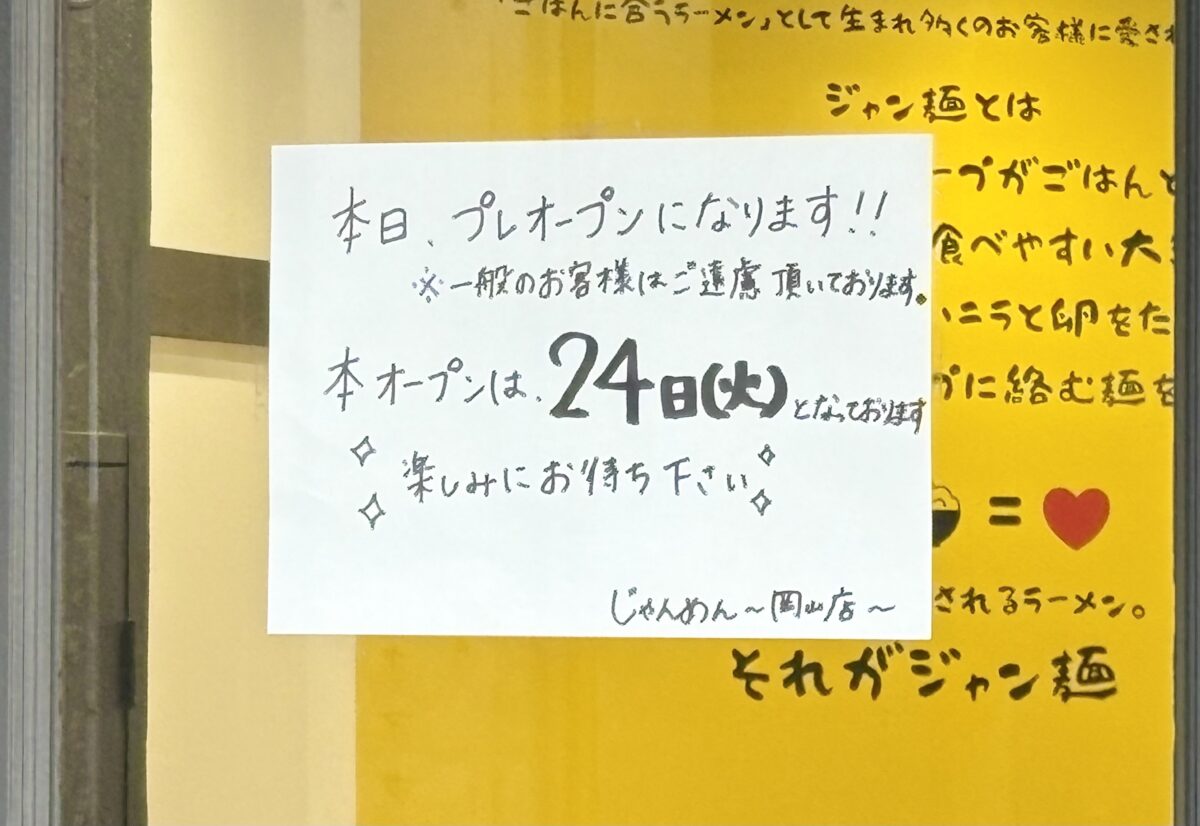 「ごはんに合うラーメン」として生まれ多くのお客様に愛され
ジャン麺とは
ープがごはんと
食べやすい大
ニラと卵をた
に絡む麺を
=
されるラーメン。
それがジャン麺
本日、プレオープンになります!!
※一般のお客様はご遠慮頂いております。
本オープンは、24日(火)となっております
楽しみにお待ち下さい
じゃんめん〜岡山店〜